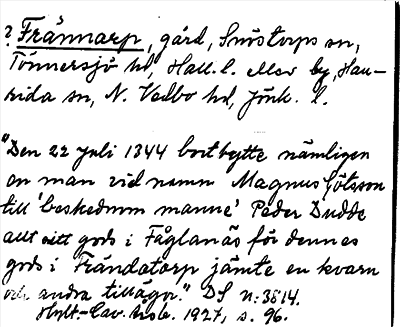 ? Frännarp, gård, Snöstorps sn,
Tönnersjö hd, Hall. l. eller by, Hau-
rida sn, N. Vedbo hd, Jönk. l.
"Den 22 juli 1344 bortbytte nämligen
en man vid namn Magnus Götsson
till 'beskednom manne' Peder Dudde
allt sitt gods i Fåglanäs för dennes
gods i Frändatorp jämte en kvarn
och andra tillägor." DS n: 3814.
Hylt-Cav. årsb. 1927, s. 96.